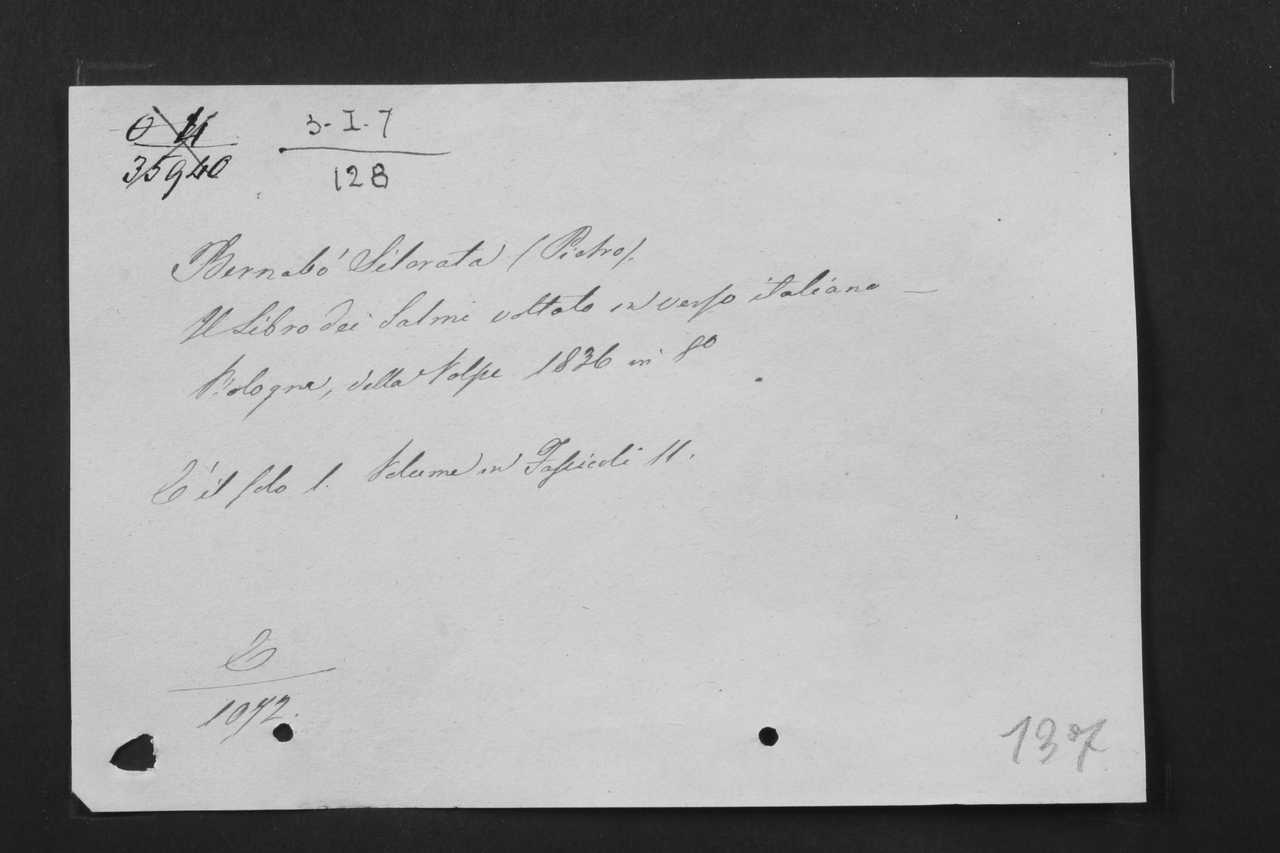 3-I-7
35940
128
Bernabó Silorata (Pietro).
Il Libro dei Salmi voltato in verso italiano —
Bologna, della Volpe 1836 in 8º
È il solo 1. Volume in Fascicoli 11.
1072.
137